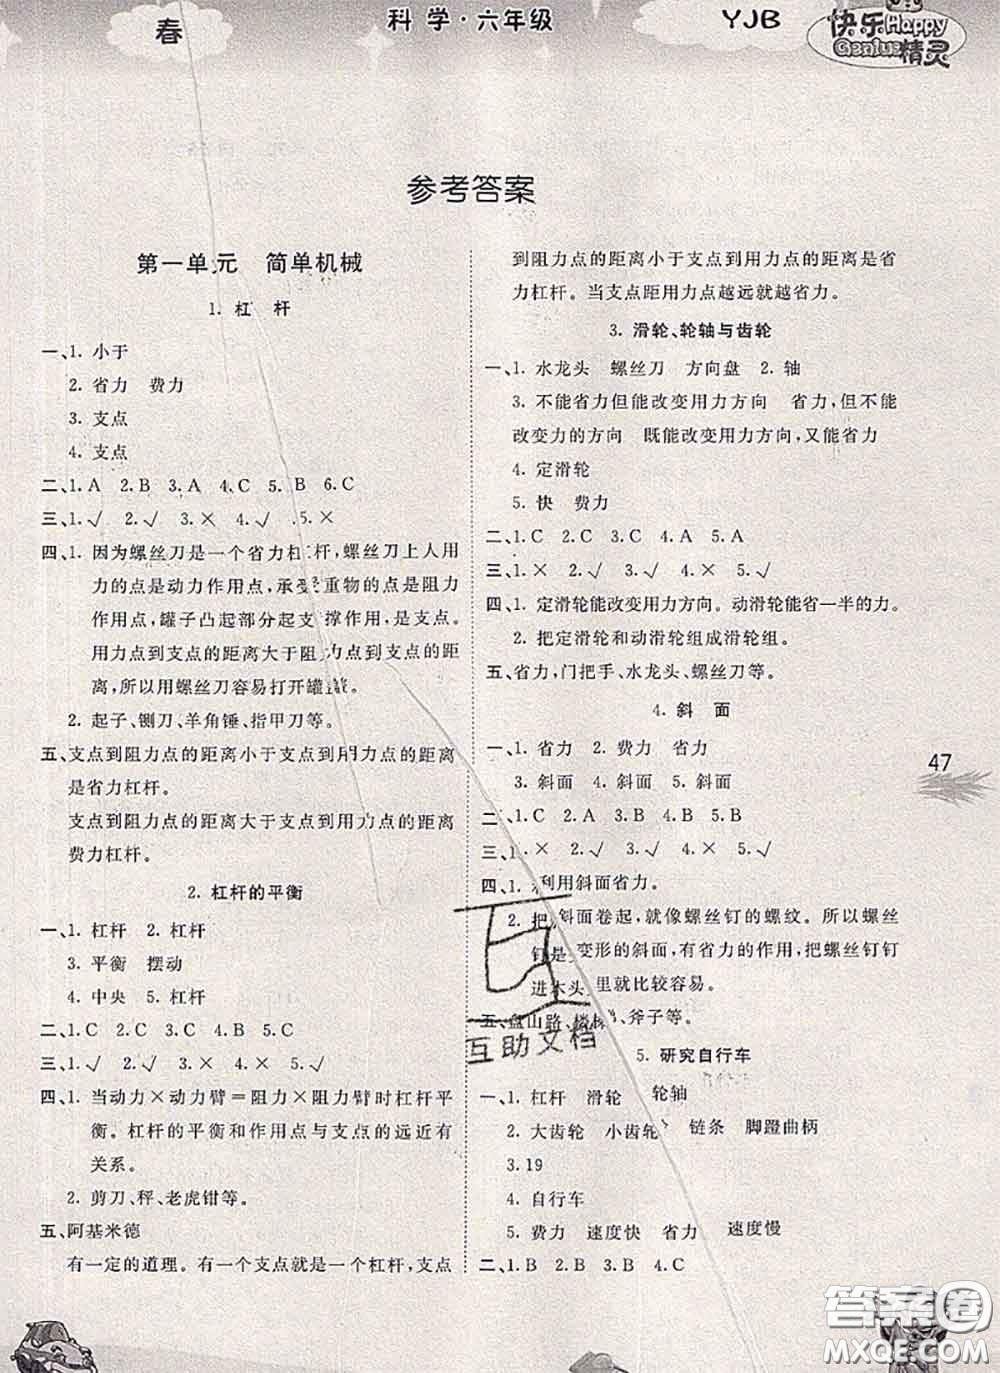 春
科学·六年级
YJB
快乐Happy
Genius精灵
参考答案
第一单元 简单机械
1. 杠 杆
一、1. 小于
2. 省力 费力
3. 支点
4. 支点
二、1. A 2. B 3. A 4. C 5. B 6. C
三、1. √ 2. √ 3. × 4. √ 5. ×
四、1. 因为螺丝刀是一个省力杠杆,螺丝刀上人用
力的点是动力作用点,承受重物的点是阻力
作用点,罐子凸起部分起支撑作用,是支点。
用力点到支点的距离大于阻力点到支点的距
离,所以用螺丝刀容易打开罐盖。
2. 起子、铡刀、羊角锤、指甲刀等。
五、支点到阻力点的距离小于支点到用力点的距离
是省力杠杆。
支点到阻力点的距离大于支点到用力点的距离是
费力杠杆。
2. 杠杆的平衡
一、1. 杠杆 2. 杠杆
3. 平衡 摆动
4. 中央 5. 杠杆
二、1. C 2. C 3. A 4. B 5. C
三、1. √ 2. √ 3. × 4. √ 5. √
四、1. 当动力×动力臂=阻力×阻力臂时杠杆平
衡。杠杆的平衡和作用点与支点的远近有
关系。
2. 剪刀、秤、老虎钳等。
五、阿基米德
有一定的道理。有一个支点就有一个杠杆,支点
到阻力点的距离小于支点到用力点的距离是省
力杠杆。当支点距用力点越远就越省力。
3. 滑轮、轮轴与齿轮
一、1. 水龙头 螺丝刀 方向盘 2. 轴
3. 不能省力但能改变用力方向 省力,但不能
改变力的方向 既能改变用力方向,又能省力
4. 定滑轮
5. 快 费力
二、1. C 2. C 3. A 4. A 5. A
三、1. × 2. √ 3. √ 4. × 5. √
四、1. 定滑轮能改变用力方向。动滑轮能省一半的力。
2. 把定滑轮和动滑轮组成滑轮组。
五、省力,门把手、水龙头、螺丝刀等。
4. 斜 面
一、1. 省力 2. 费力 省力
3. 斜面 4. 斜面 5. 斜面
二、1. C 2. A 3. B 4. B 5. B
三、1. × 2. √ 3. √ 4. × 5. √
四、1. 利用斜面省力。
2. 把斜面卷起,就像螺丝钉的螺纹。所以螺丝
钉是变形的斜面,有省力的作用,把螺丝钉钉
进木头里就比较容易。
五、盘山路、楼梯、斧子等。
5. 研究自行车
一、1. 杠杆 滑轮 轮轴
2. 大齿轮 小齿轮 链条 脚蹬曲柄
3. 19
4. 自行车
5. 费力 速度快 省力 速度慢
二、1. B 2. B 3. B 4. C
47
互助文档
答案圈
MXQE.COM